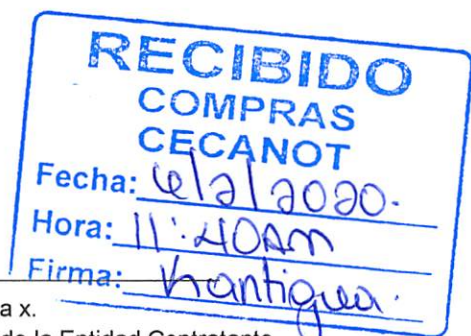 RECIBIDO
COMPRAS
CECANOT
Fecha: 6/2/2020.
Hora: 11:40AM
Firma: Kantigua.
a x.
de la Entidad Contratante